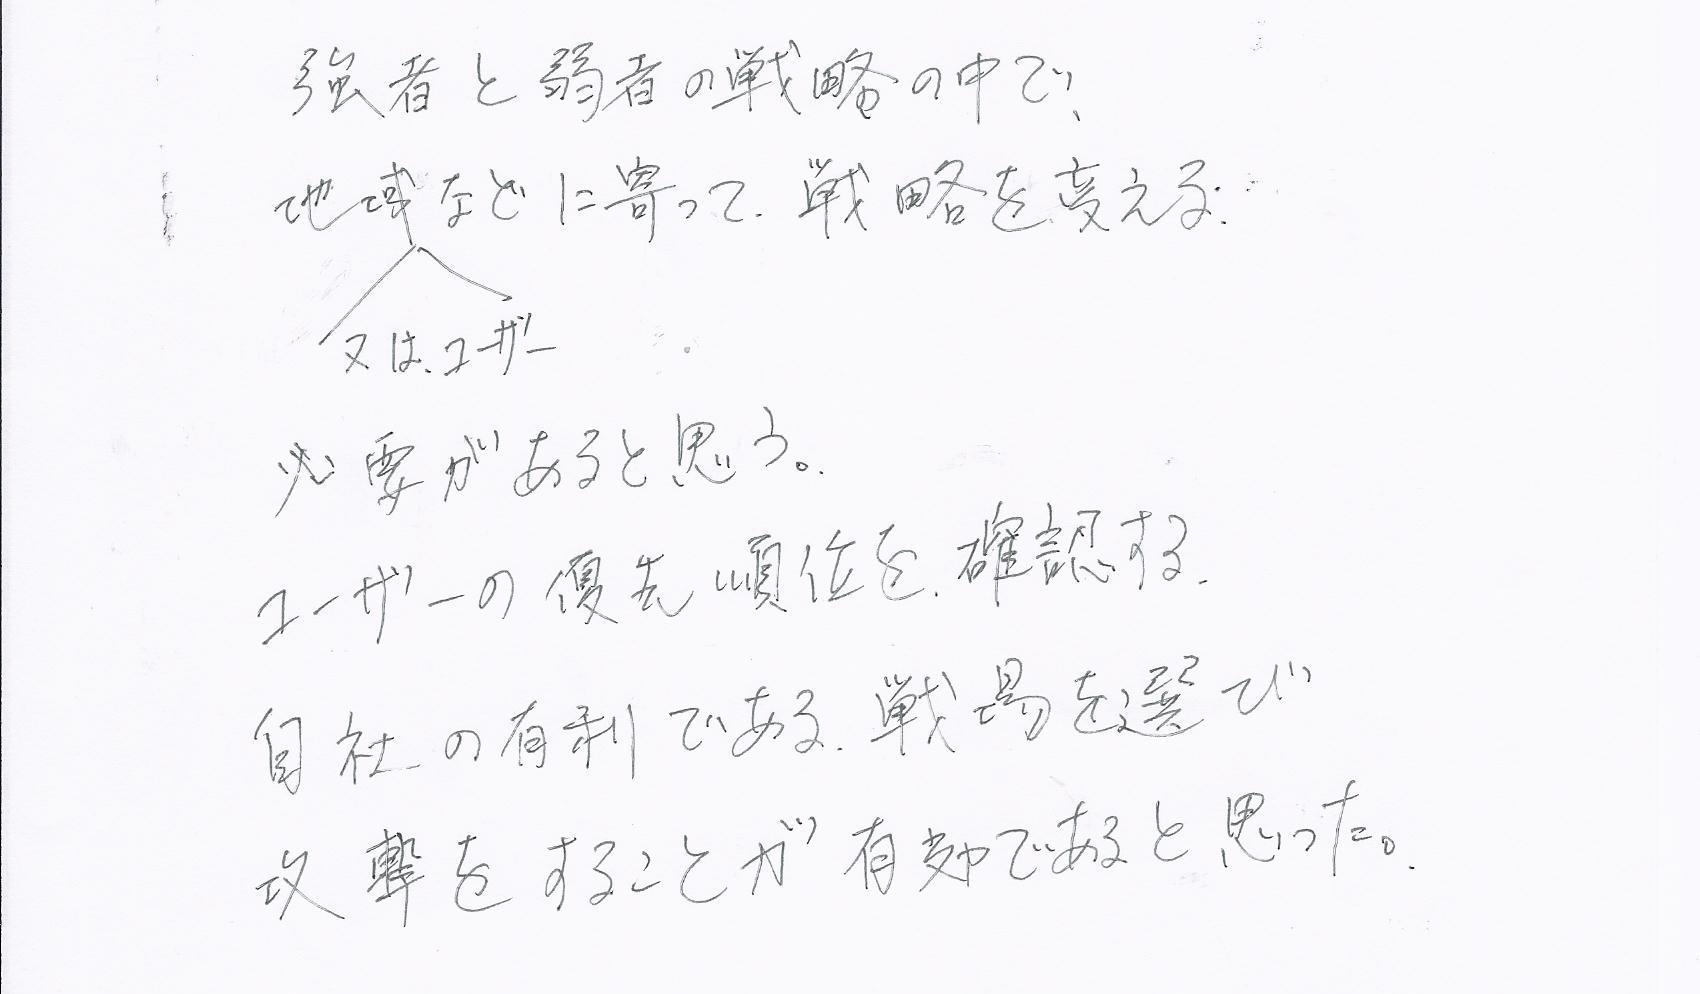 強者と弱者の戦略の中で、
地域などに寄って、戦略を変える
又は、ユーザー
必要があると思う。
ユーザーの優先順位を、確認する。
自社の有利である、戦場を選び
攻撃をすることが有効であると思った。